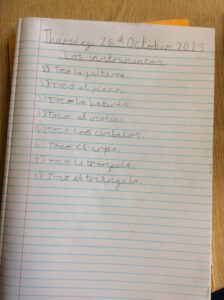 Thursday 26th October 2023
Los instrumentos
1) Toco la guitarra.
2) Toco el piano.
3) Toco la batería.
4) Toco el violín.
5) Toco los címbalos.
6) Toco el arpa.
7) Toco la trompeta.
8) Toco el triángulo.